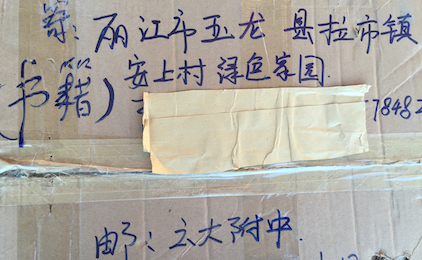 寄:丽江市玉龙县拉市镇
安上村 绿色家园
(书籍) 78482
邮:云大附中.